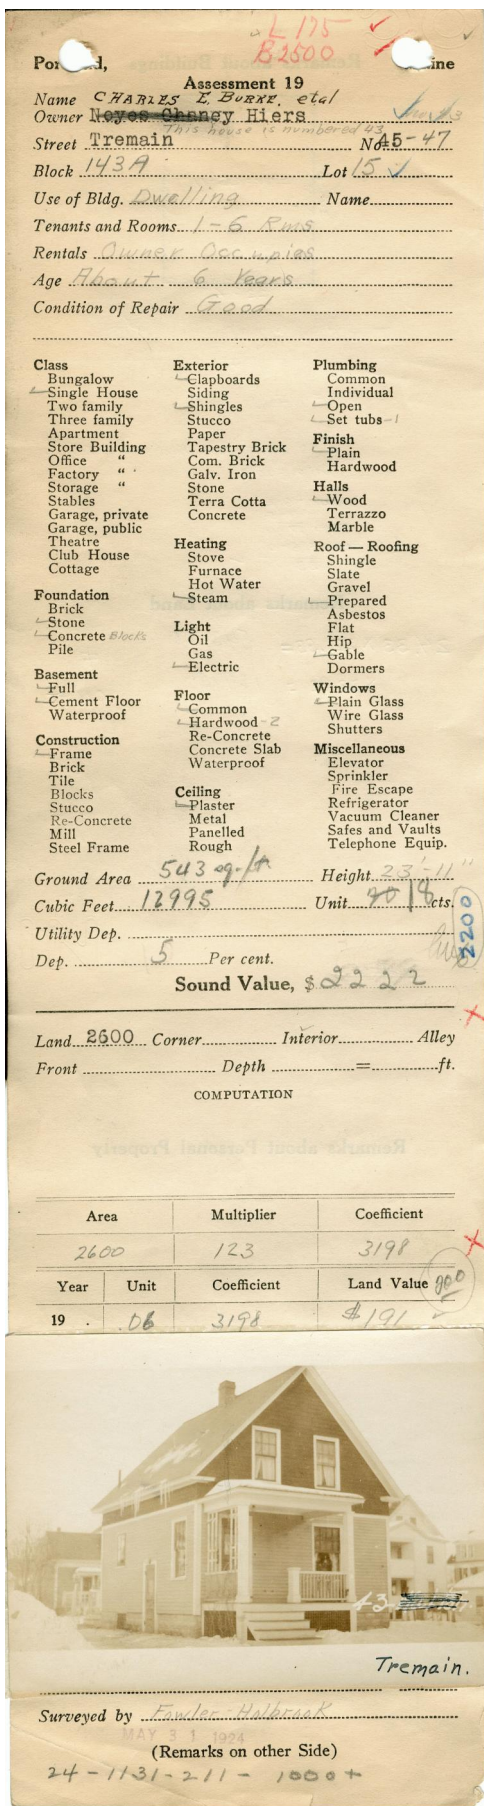 L 175
B 2500
Portland, Maine
Assessment 19
Name CHARLES E. BURKE, etal
Owner Noyes Chaney Hiers
This house is numbered 43
Street Tremain No. 45-47
Block 143A Lot 15
Use of Bldg. Dwelling Name
Tenants and Rooms 1-6 Rms
Rentals Owner Occupies
Age About 6 Years
Condition of Repair Good
Class
Bungalow
Single House
Two family
Three family
Apartment
Store Building
Office "
Factory "
Storage "
Stables
Garage, private
Garage, public
Theatre
Club House
Cottage
Foundation
Brick
Stone
Concrete Blocks
Pile
Basement
Full
Cement Floor
Waterproof
Construction
Frame
Brick
Tile
Blocks
Stucco
Re-Concrete
Mill
Steel Frame
Exterior
Clapboards
Siding
Shingles
Stucco
Paper
Tapestry Brick
Com. Brick
Galv. Iron
Stone
Terra Cotta
Concrete
Heating
Stove
Furnace
Hot Water
Steam
Light
Oil
Gas
Electric
Floor
Common
Hardwood - 2
Re-Concrete
Concrete Slab
Waterproof
Ceiling
Plaster
Metal
Panelled
Rough
Plumbing
Common
Individual
Open
Set tubs - 1
Finish
Plain
Hardwood
Halls
Wood
Terrazzo
Marble
Roof — Roofing
Shingle
Slate
Gravel
Prepared
Asbestos
Flat
Hip
Gable
Dormers
Windows
Plain Glass
Wire Glass
Shutters
Miscellaneous
Elevator
Sprinkler
Fire Escape
Refrigerator
Vacuum Cleaner
Safes and Vaults
Telephone Equip.
Ground Area 543 sq. ft Height 23'-11"
Cubic Feet 12995 Unit 20 18 cts.
2200
Utility Dep.
Dep. 5 Per cent.
Sound Value, $ 2222
Land 2600 Corner Interior Alley
Front Depth = ft.
COMPUTATION
Area Multiplier Coefficient
2600 123 3198
Year Unit Coefficient Land Value 200
19 . .06 3198 $191
43
Tremain.
Surveyed by Fowler-Holbrook
MAY 31 1924
(Remarks on other Side)
24-1131-211- 1000+